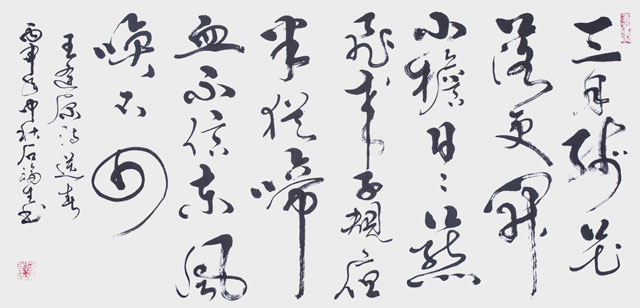 三月殘花
落更開
小檐日日燕
飛來子規夜
半猶啼
血不信東風
喚不回
王逢原詩送春
丙申年中秋石